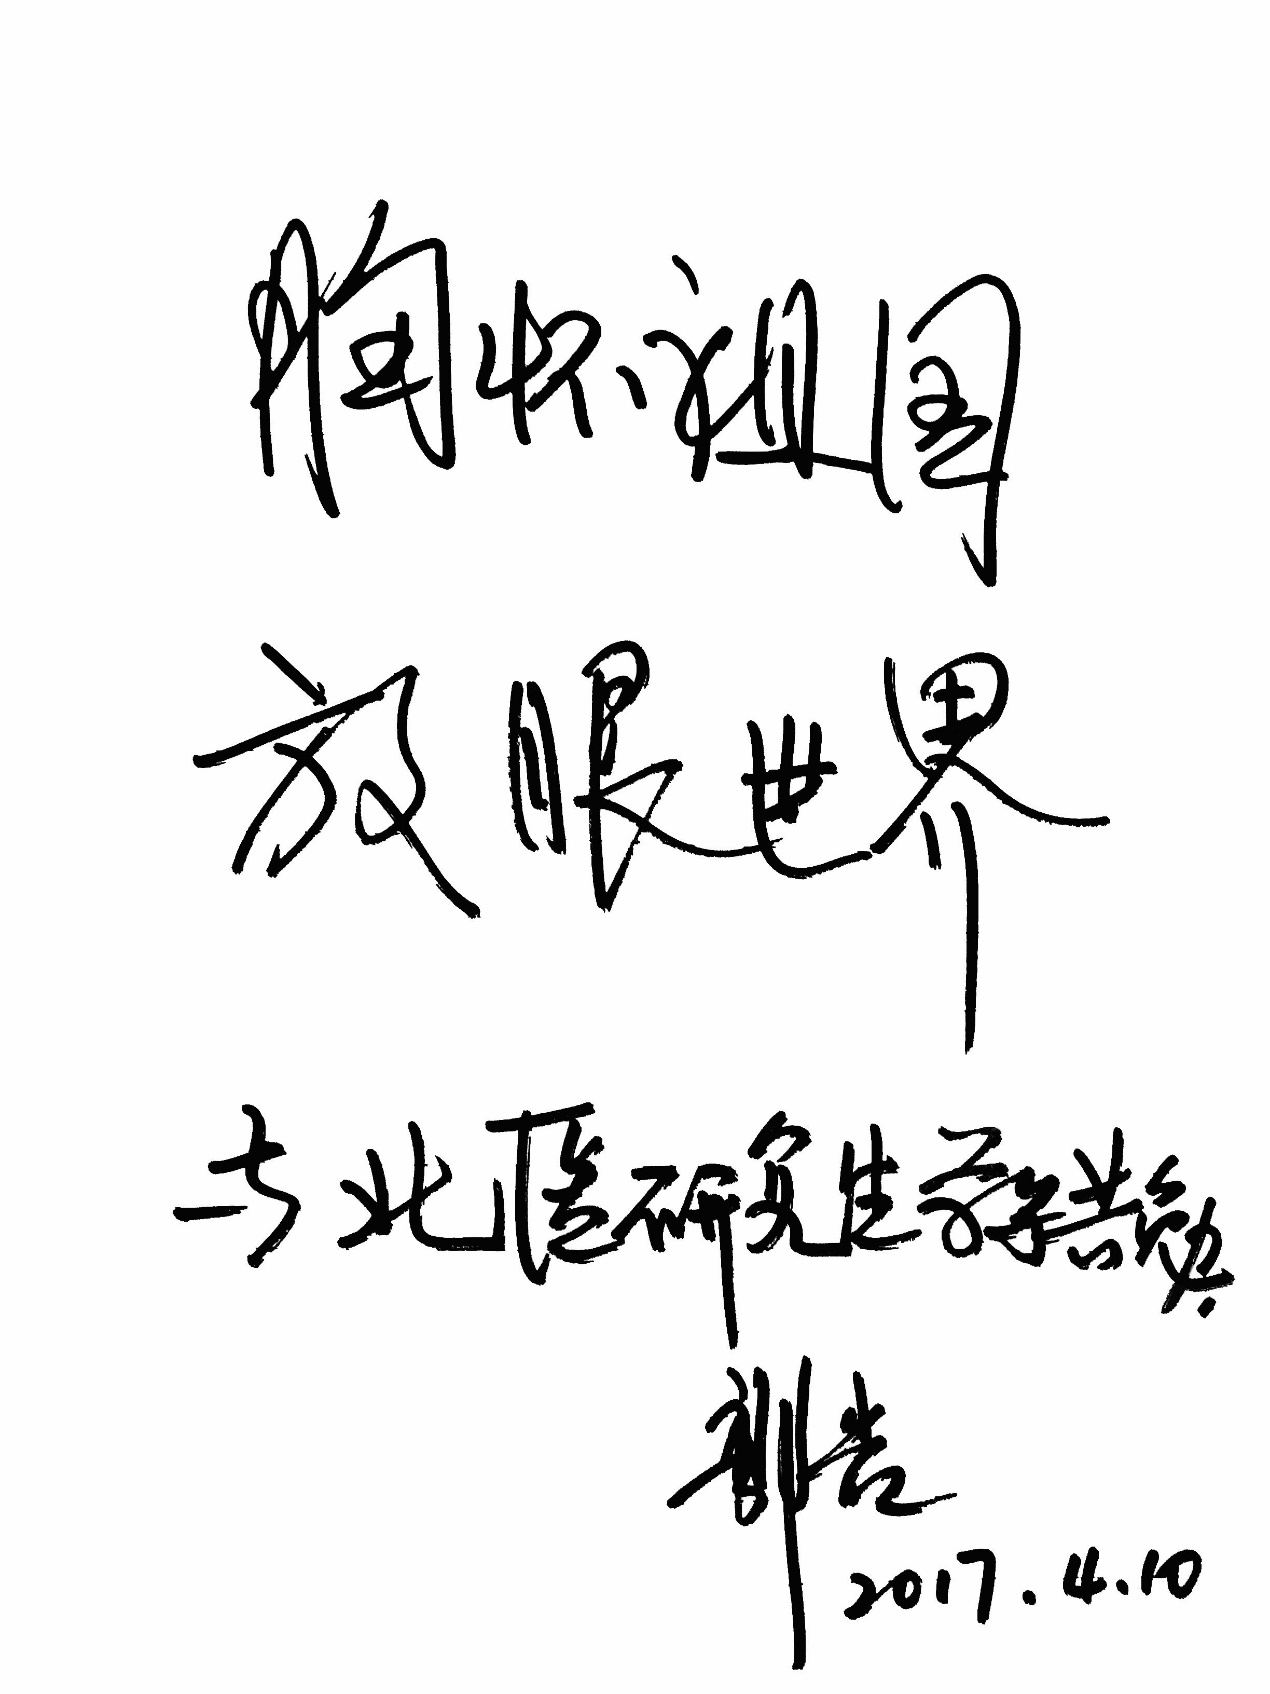 胸怀祖国
放眼世界
与北医研究生学弟共勉
2017.4.10